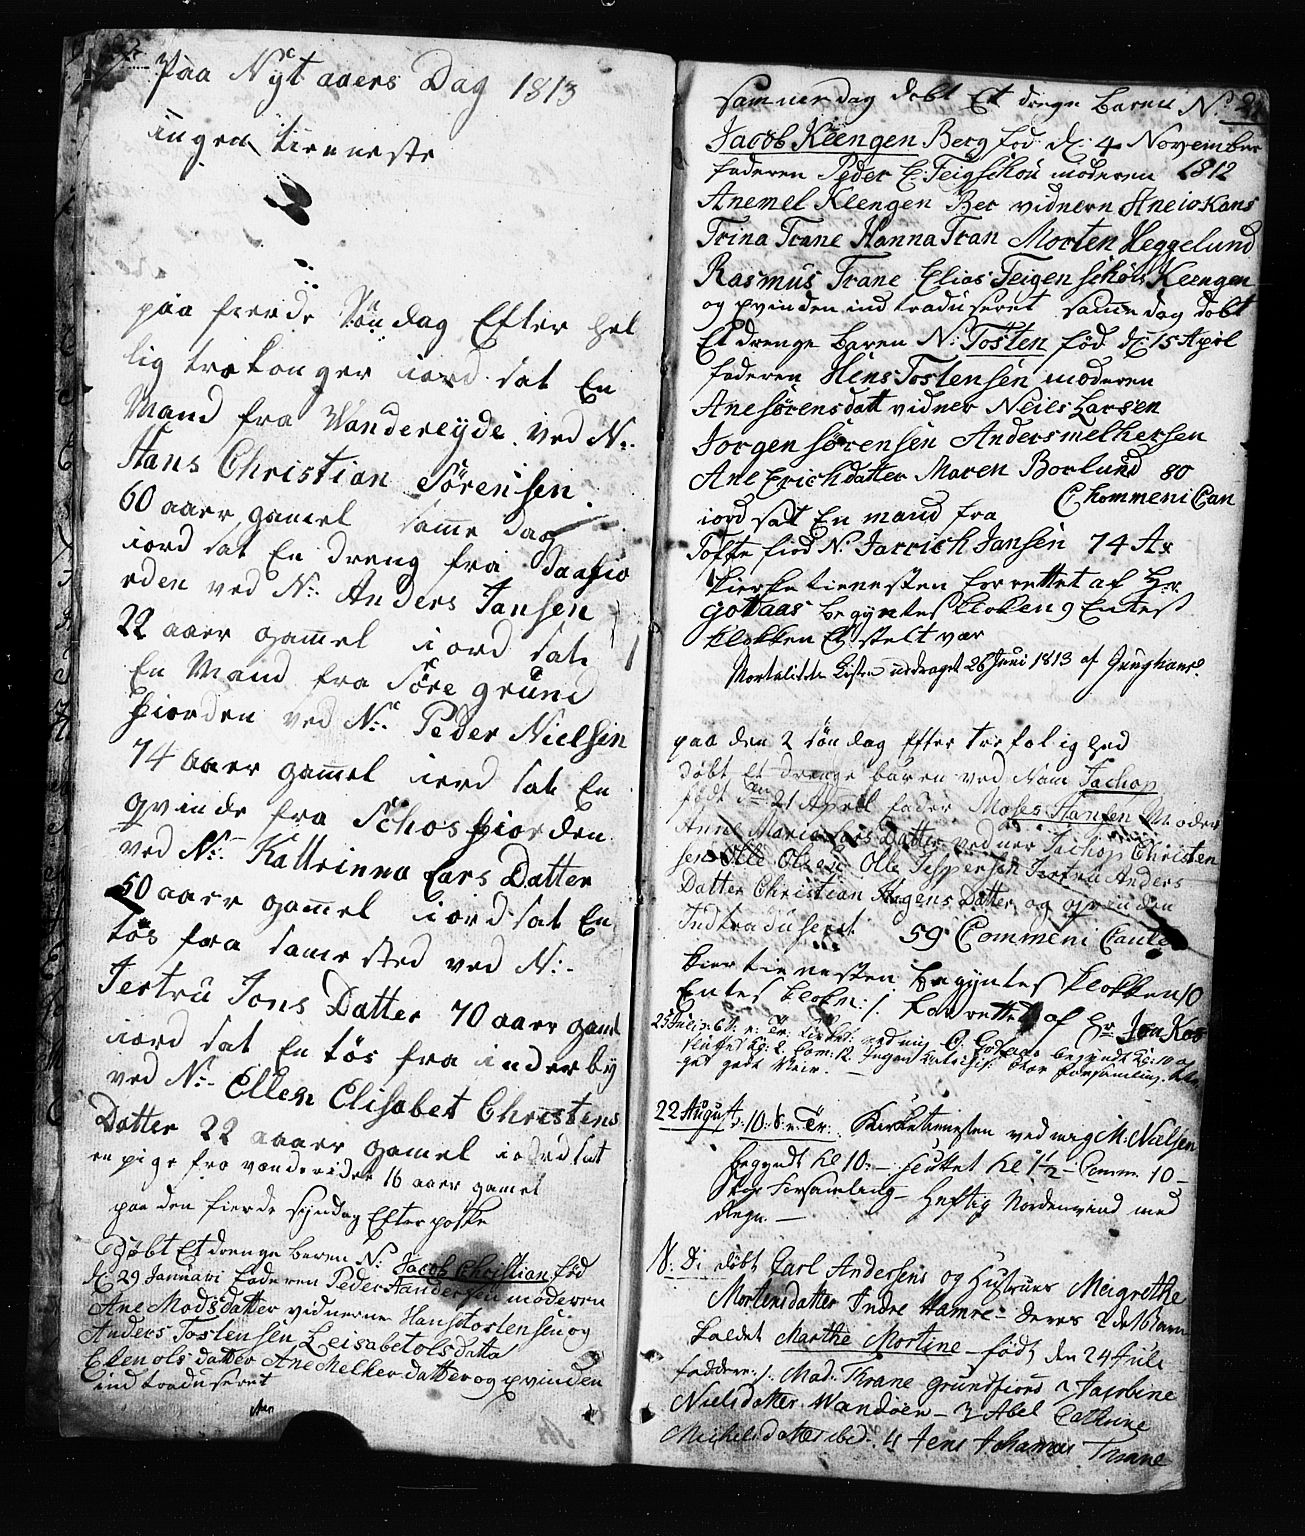 92
Paa Nyt aaers Dag 1813
ingen tienneste
paa fierde Sön dag Efter hel
lig tre konger iord sat En
Mand fra Wandereyde ved N:
Hans Christian Sørensen
60 aaer gamel samme dag
iord sat En dreng fra Daafio
rden ved N: Anders Jansen
22 aaer gamel iord sat
En Mand fra Søre grund
fiorden ved N: Peder Nielsen
74 aaer gamel iord sat En
qvinde fra Schosfiorden
ved N: Kattrinna Lars Datter
50 aaer gamel iord sat En
tös fra samme sted ved N:
Jertru Jons Datter 70 aaer gaml
iord sat En tös fra inderby
ved N: Ellen Elisabet Christens
Datter 22 aaaer gamel iord sat
en pige fra vandereidet 16 aaer gamel
paa den fierde syndag Efter poske
Döbt Et drenge baren N: Jacob Christian föd
d: 29 Januari faderen Peder Handersen moderen
Ane Madsdatter vidnerne Hans Tostensen og
Anders Tostensen Leisabet olsdatter
Elen ols datter Ane Melker datter og qvinden
introduseret
samme dag döbt Et drenge baren N:
Jacob Kleengen Berg föd d: 4 November
faderen Peder E: Teigschou moderen 1812
Anemel Kleengen Ber vidnern Aneio Kans
Trina Trane Hanna Tran Morten Heggelund
Rasmus Trane Elias Teigen schou Kleengen
og qvinden ind traduseret samme dag döbt
Et drenge baren N: Tosten föd d: 15 April
faderen Hens Tostensen moderen
Ane Sörensdatt vidner Neies Larsen
Jorgen Sørensen Anders melkersen
Ane Erichdatter Maren Borlund 80
Chommeni Can
iord sat En mand fra
Toftefiod N: Jarrich Jansen 74 A:
kierke tienesten forrettet af Hr
Gottaas begyntes klokken 9 Entes
klokken Et stelt vær
Mortalitets Listen uddraget 26 Juni 1813 af Junghans.
paa den 2 sön dag Efter trefolighed
döbt Et drenge baren ved Nam Jachop
födt den 21 April fader Moses Hansen Moder
Anne Maria Lars Datter vedner Jachop Christen
sen Olle Olsen Olle Jespersen Jertru Anders
Datter Christian Hagens Datter og qvinden
Indtraduseret 59 Commeni Canter
kiertienesten begyntes klokken 10
Entes klokn: 1. forrettet af Hr Jon Kos
25 Julii: 6 S: e: Tr: Kirket: ved mig O: Gottaas begyndt Kl: 10 og
sluttes Kl: 2. Com: 12. Ingen Catechis: Stor forsamling.
get godt Veir.
22 August, 10. S: e: Tr: Kirketienesten ved mig M: Nielsen
begyndt Kl 10 - sluttet Kl 1½ - Comm. 10 -
Stor Forsamling - Heftig Nordenvind med
Regn -
S. D: döbt Carl Andersens og Hustrues Meigrethe
Mortensdatter Indre Hamre - Deres 2det Barn
kaldet Marthe Mortine - födt den 24 Juli
faddere: 1. Mad: Thrane Grundfiord 2 Jacobine
Nielsdatter Wandöen - 3 Abel Cathrine
Michelsdatter ibid: 4 Jens Johannes Thrane